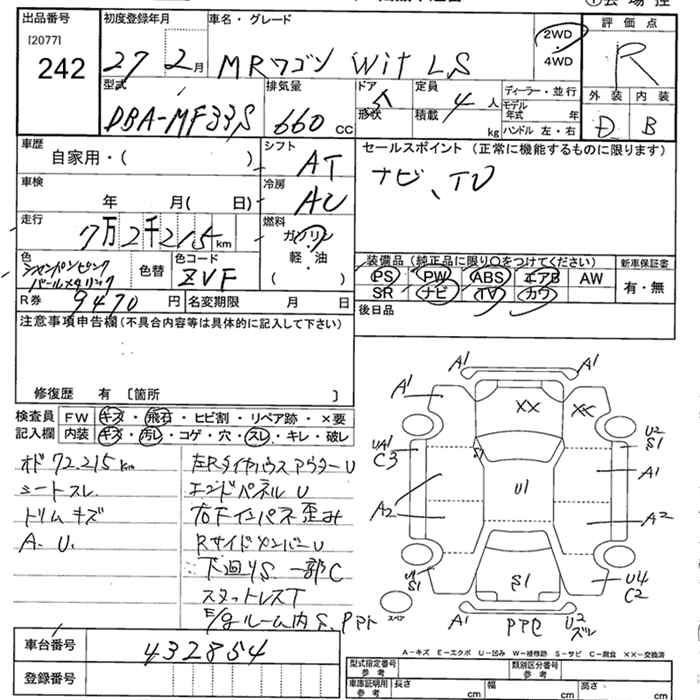 出品番号 初度登録年月 車名・グレード 評価点
[2077]
242 27年2月 MRワゴン Wit LS 2WD・4WD R
型式 排気量 ドア 定員 ディーラー・並行 外装 内装
DBA-MF33S 660cc 5 4人 モデル年式 年 D B
形状 積載 kg ハンドル 左・右
車歴 シフト セールスポイント(正常に機能するものに限ります)
自家用・( ) AT ナビ、TV
車検 冷房
年 月( 日) AC
走行 燃料
7万2千215km ガソリン
軽・油
( )
色 色替 色コード 装備品(純正品に限り○をつけてください) 新車保証書
シャンパンピンクパールメタリック ZVF PS PW ABS エアB AW 有・無
SR ナビ TV カワ
R券 9470円 名変期限 月 日 後日品
注意事項申告欄(不具合内容等は具体的に記入して下さい)
修復歴 有 [箇所 ]
検査員 FW キズ・飛石・ヒビ割・リペア跡・×要
記入欄 内装 キズ・汚レ・コゲ・穴・スレ・キレ・破レ
オド72,215km 左RタイヤハウスアウターU
シートスレ エンドパネルU
トリムキズ 右Fインパネ歪み
A.U. RサイドメンバーU
下廻りS 一部C
スタットレスT
E/gルーム内S、
A1 A1
A1 XX XX
UA1 U2
C3 S1
A1
A2 U1 A2
U1 U4
S1 S1 C2
スペア A1 U2
ズレ
A-キズ E-エクボ U-凹み W-補修跡 S-サビ C-腐食 XX-交換済
車台番号 432854
登録番号
型式指定番号 参考 類別区分番号 参考
車庫証明用 参考 長さ cm 幅 cm 高さ cm